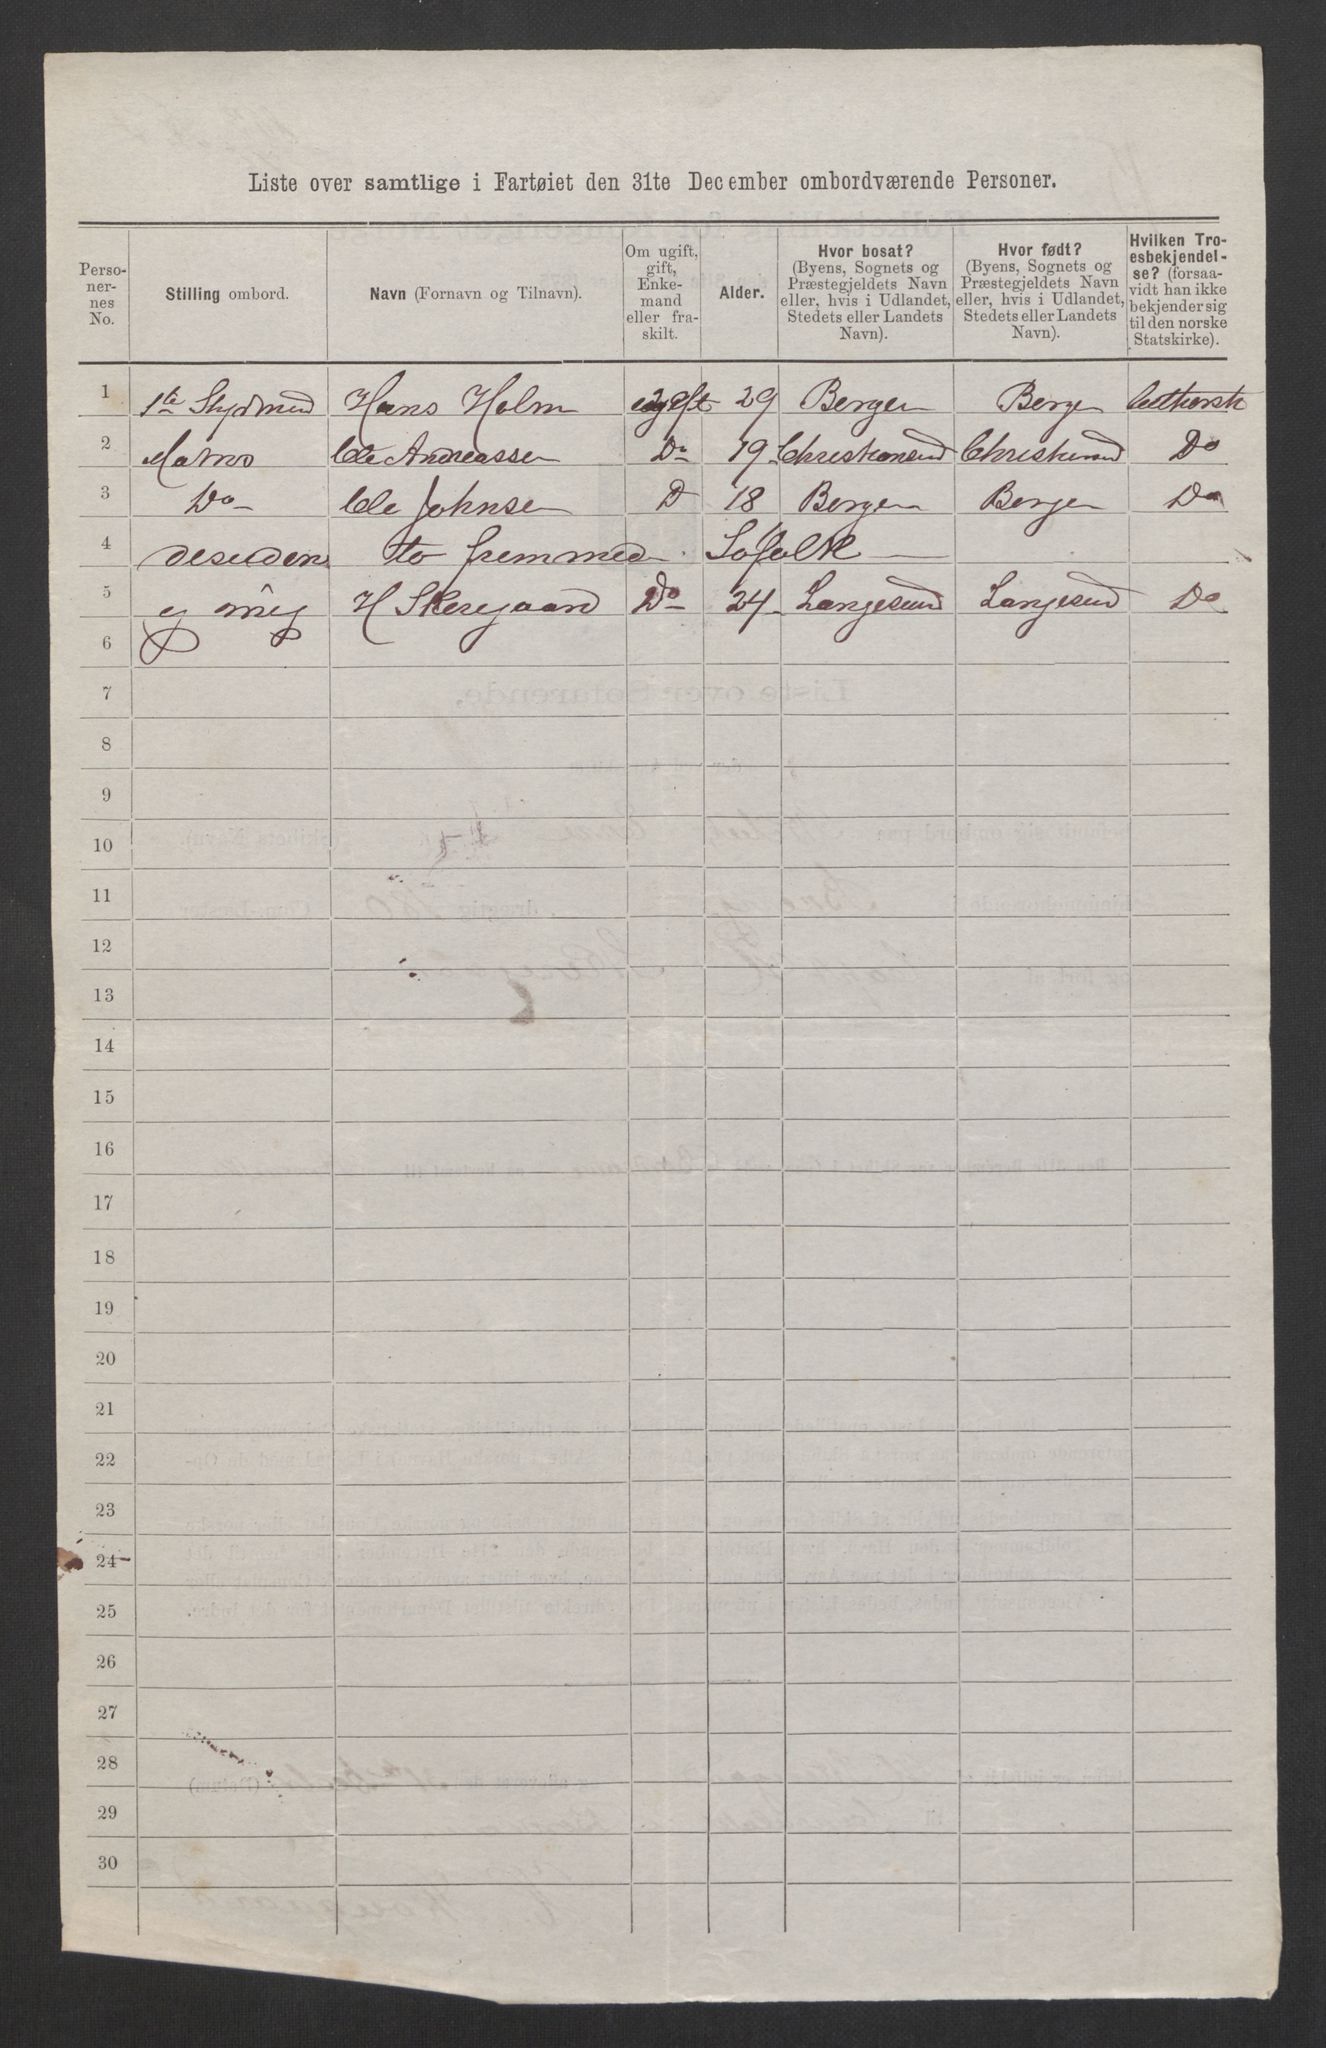 Liste over samtlige i Fartøiet den 31te December ombordværende Personer.
Perso-
ner-
nes
No.
Stilling ombord.
Navn (Fornavn og Tilnavn).
Om ugift,
gift,
Enke-
mand
eller fra-
skilt.
Alder.
Hvor bosat?
(Byens, Sognets og
Præstegjeldets Navn
eller, hvis i Udlandet,
Stedets eller Landets
Navn).
Hvor født?
(Byens, Sognets og
Præstegjeldets Navn
eller, hvis i Udlandet,
Stedets eller Landets
Navn).
Hvilken Tro-
esbekjendel-
se? (forsaa-
vidt han ikke
bekjender sig
til den norske
Statskirke).
1 1ste Styrmend Hans Holm ugift 29 Bergen Bergen Luthersk
2 Matros Ole Andreassen Do 19 Christiansund Christiansund Do
3 Do Ole Johnsen D 18 Bergen Bergen Do
4 desuden to fremmed Søfolk
5 og mig H Skeregaard Do 24 Langesund Langesund Do
6
7
8
9
10
11
12
13
14
15
16
17
18
19
20
21
22
23
24
25
26
27
28
29
30